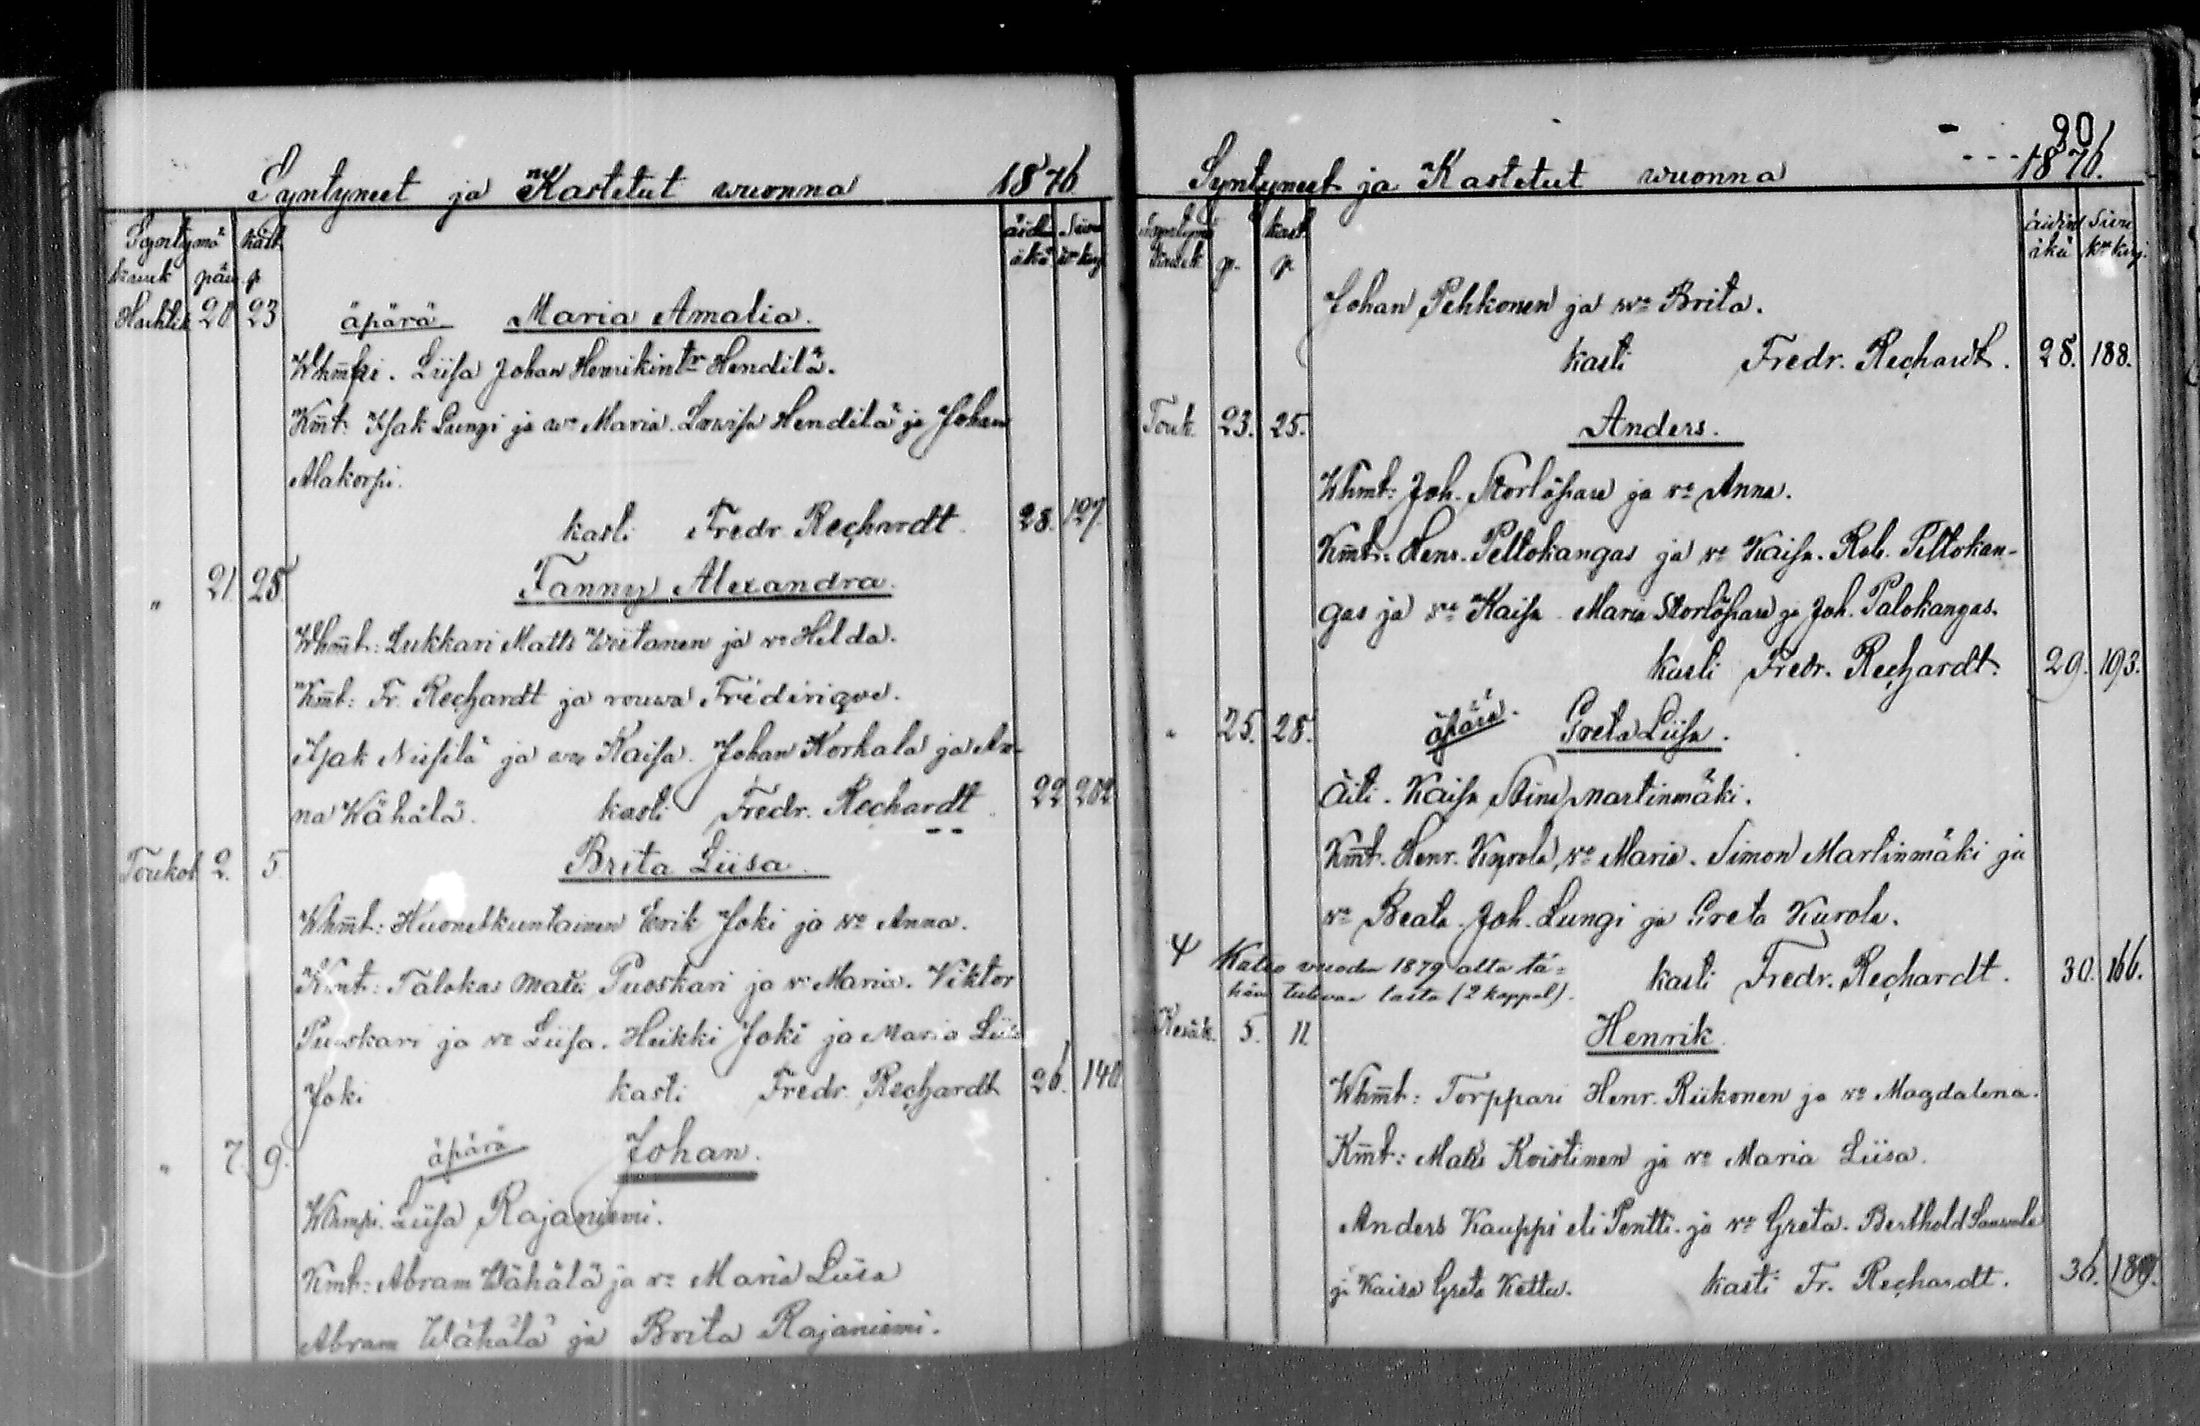 Syntyneet ja Kastetut wuonna 1876
Syntymä kast. äidin Siwu
kuuk päiv p ikä kr kirj
Huhtik 20 23 äpärä Maria Amalia.
Whmpi. Liisa Johan Henrikintr Hendilä.
Kmt: Isak Lungi ja wo Maria. Lowisa Hendilä ja Johan
Alakorpi.
kasti Fredr. Rechardt. 28. 127.
" 21 25 Fanny Alexandra.
Whmt: Lukkari Matts Witanen ja wo Hilda.
Kmt: Fr. Rechardt ja rouwa Fréderique.
Isak Niisilä ja wo Kaisa. Johan Korkala ja An-
na Wähälä. kasti Fredr. Rechardt. 22 202
Toukok 2. 5. Brita Liisa.
Whmt: Huonetkuntainen Erik Joki ja wo Anna.
Kmt: Talokas Matts Puoskari ja wo Maria. Viktor
Puoskari ja wo Liisa. Heikki Joki ja Maria Liisa
Joki kasti Fredr. Rechardt 26. 140
" 7. 9. äpärä Johan.
Whmpi. Liisa Rajaniemi.
Kmt: Abram Wähälä ja wo Maria Liisa
Abram Wähälä ja Brita Rajaniemi.
90
Syntyneet ja Kastetut wuonna 1876.
Syntymä kast. äidin Siwu
kuuk p. p ikä kr kirj.
Johan Pehkonen ja wo Brita.
kasti Fredr. Rechardt. 28. 188.
Touk. 23. 25. Anders.
Whmt: Joh. Storlöpare ja wo Anna.
Kmt: Henr. Peltokangas ja wo Kaisa. Rob. Peltokan-
gas ja wo Kaisa. Maria Storlöpare ja Joh. Palokangas.
kasti Fredr. Rechardt. 29. 193.
" 25. 28. äpärä. Greta Liisa.
Äiti. Kaisa Stina Martinmäki.
Kmt. Henr. Kurola, wo Maria. Simon Martinmäki ja
wo Beata. Joh. Lungi ja Greta Kurola.
Katso vuoden 1879 alta tä=
hän tulevaa lasta (2 kappal). kasti Fredr. Rechardt. 30. 166.
Kesäk. 5. 11 Henrik.
Whmt: Torppari Henr. Riikonen ja wo Magdalena.
Kmt: Matts Koistinen ja wo Maria Liisa.
Anders Kauppi eli Pontti. ja wo Greta. Berthold
ja Kaisa Greta Kettu. kasti Fr. Rechardt. 36.